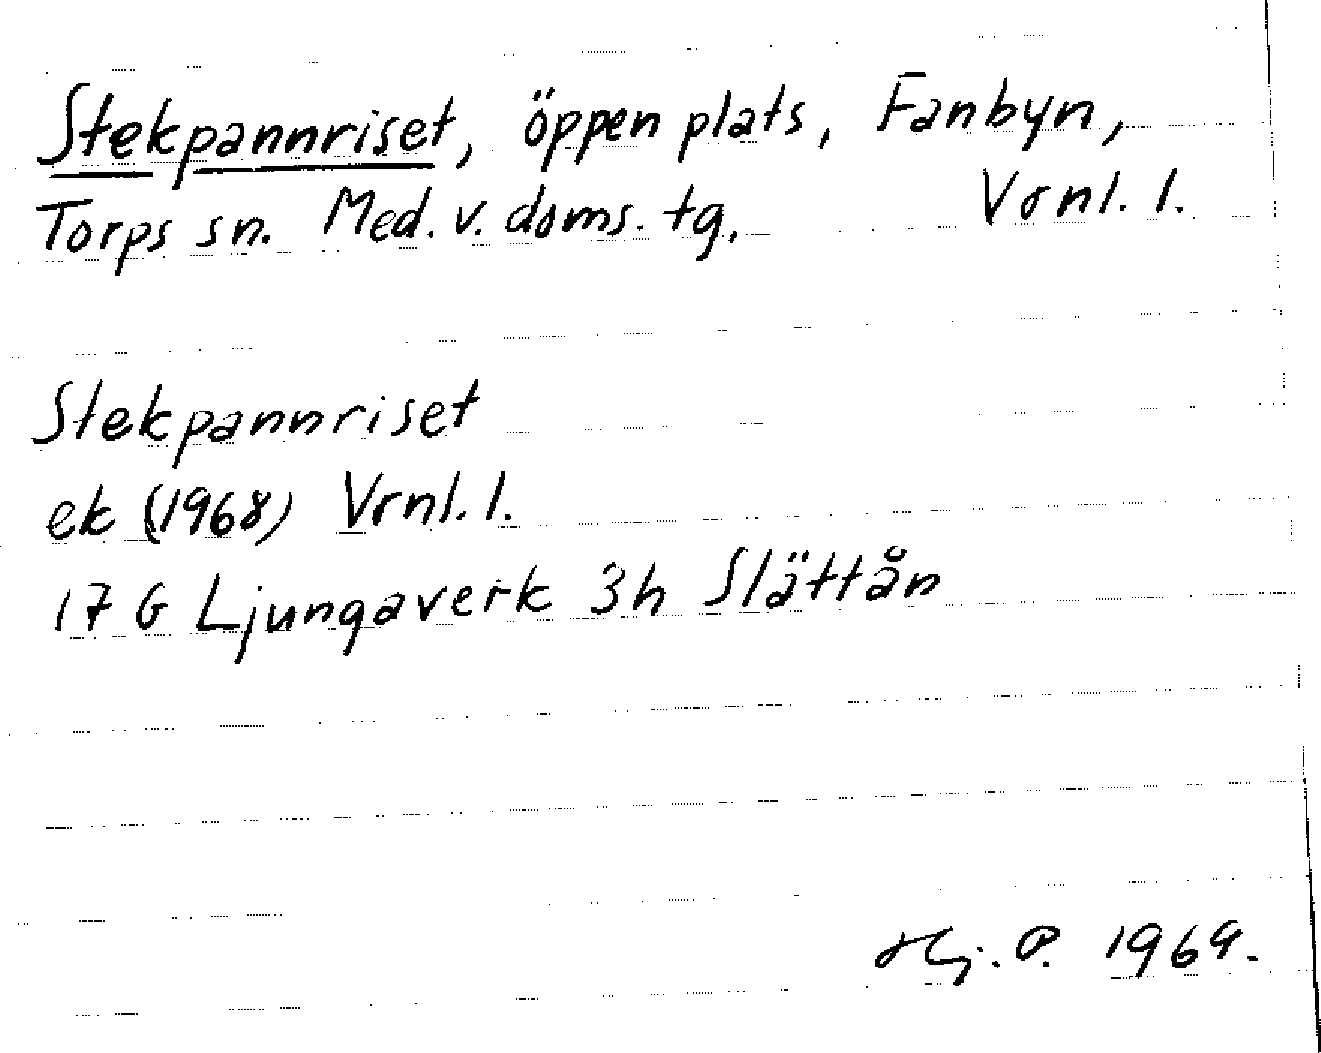 Stekpannriset, öppen plats, Fanbyn,
Torps sn. Med. v. doms. tg. Vrnl. l.
Stekpannriset
ek (1968) Vrnl. l.
17 G Ljungaverk 3h Slättån
Hj. P. 1969.